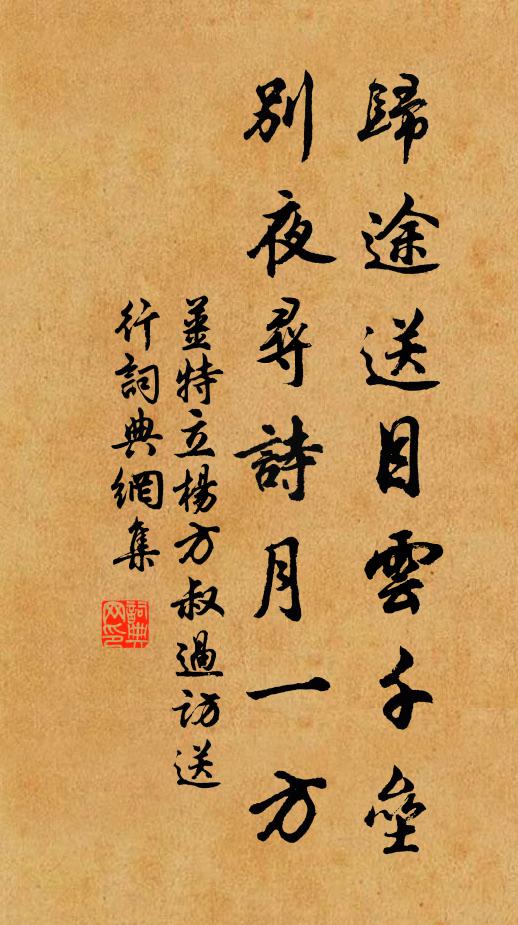 歸途送目雲千壘
別夜尋詩月一方
姜特立楊方叔過訪送
行詞典網集
詞典
网印